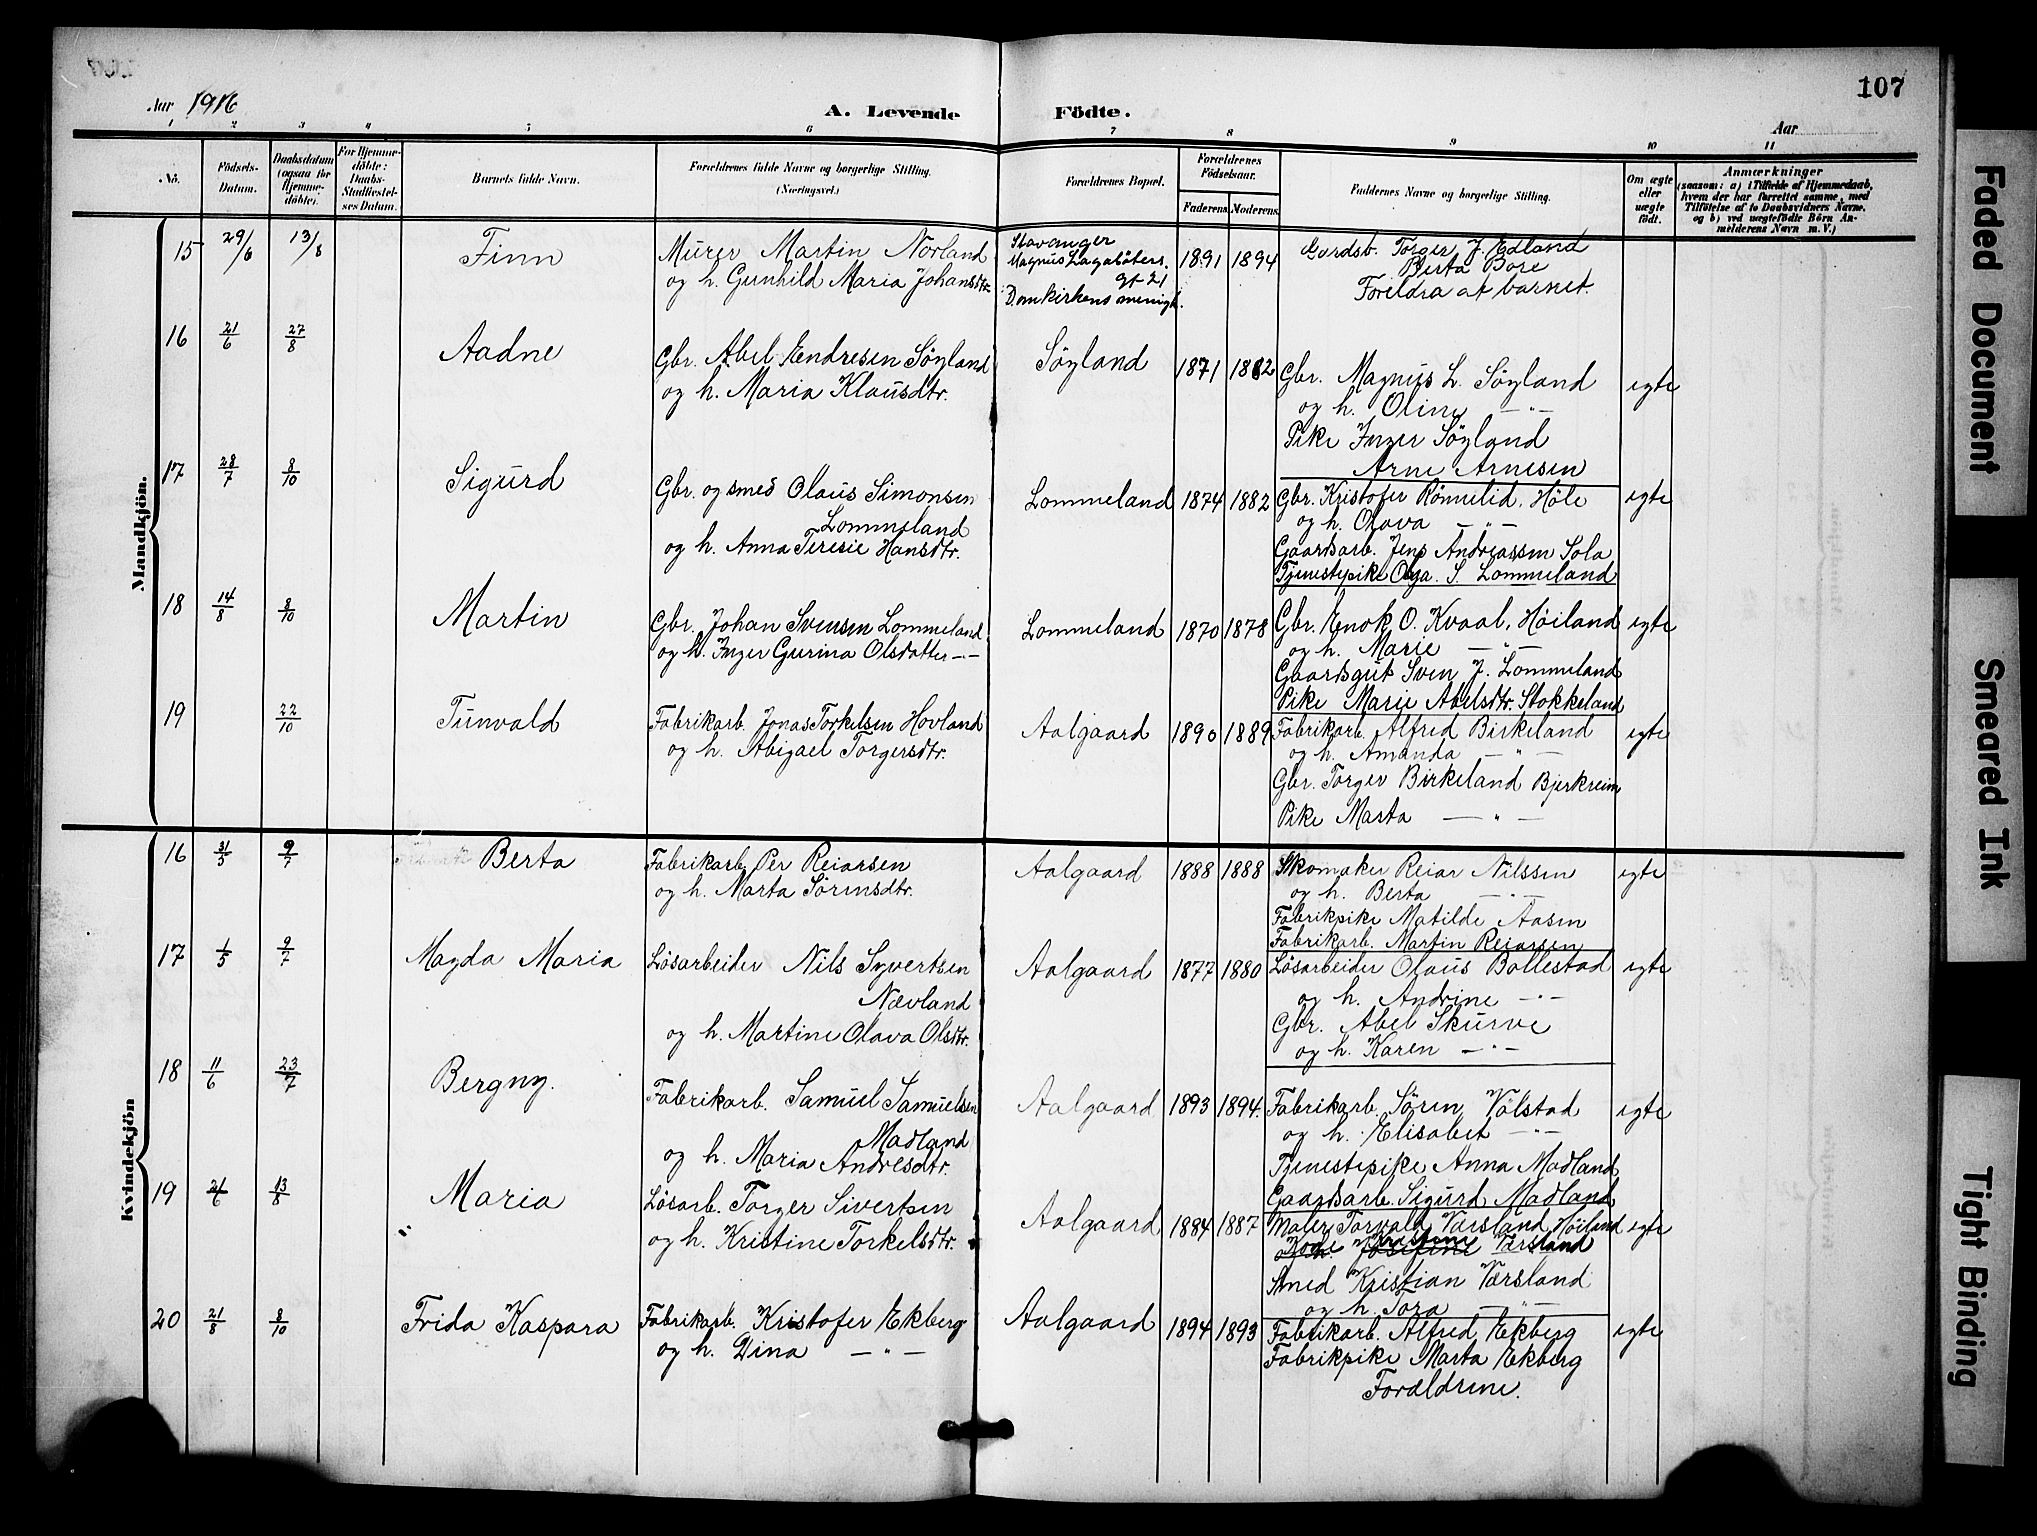 107
Aar 1916
A. Levende Födte.
Aar
1 2 3 4 5 6 7 8 9 10 11
No.
Födsels-Datum.
Daabsdatum (ogsaa for Hjemme-döbte).
For Hjemme-döbte: Daabs-Stadfæstel-ses Datum.
Barnets fulde Navn.
Forældrenes fulde Navne og borgerlige Stilling. (Næringsvei.)
Forældrenes Bopæl.
Forældrenes Födselsaar.
Faderens Moderens
Faddernes Navne og borgerlige Stilling.
Om ægte eller uægte födt.
Anmærkninger
(saasom: a) i Tilfælde af Hjemmedaab, hvem der har forrettet samme, med Tilföielse af to Daabsvidners Navne, og b) ved uægtefödte Börn An-melderens Navn m. V.)
Mandkjön.
15 29/6 13/8 Finn
Murer Martin Norland
og h. Gunhild Maria Johansdtr.
Stavanger
Magnus Lagabøters.
gt 21
Domkirkens menigh.
1891 1894
Gardsb. Torger J. Edland
Berta Bore
Foreldra at barnet.
16 21/6 27/8 Aadne
Gbr. Abel Endresen Söyland
og h. Maria Klausdtr.
Söyland 1871 1882
Gbr. Magnus L. Söyland
og h. Oline — " —
Pike Inger Söyland
Arne Arnesen
egte
17 28/7 8/10 Sigurd
Gbr. og smed Olaus Simonsen
Lommeland
og h. Anna Teresie Hansdtr.
Lommeland 1874 1882
Gbr. Kristofer Römelid, Höle
og h. Olava — " —
Gaardsarb. Jens Andreassen Sola
Tjenestepike Olga. S. Lommeland
egte
18 14/8 8/10 Martin
Gbr. Johan Svensen Lommeland
og h. Inger Gurina Olsdatter — " —
Lommeland 1870 1878
Gbr. Enok O. Kvaal, Höiland
og h. Marie — " —
Gaardsgut Sven J. Lommeland
Pike Marie Abelsdtr. Stokkeland
egte
19 22/10 Tunvald
Fabrikarb. Jonas Torkelsen Hovland
og h. Abigael Torgersdtr.
Aalgaard 1890 1889
Fabrikarb. Alfred Birkeland
og h. Amanda — " —
Gbr. Torger Birkeland Bjerkreim
Pike Marta — " —
egte
Kvindekjön
16 31/5 9/7 Berta
Fabrikarb. Per Reiarsen
og h. Marta Sörensdtr.
Aalgaard 1888 1888
Skomaker Reiar Nilssen
og h. Berta — " —
Fabrikpike Matilde Aasen
Fabrikarb. Martin Reiarsen
egte
17 1/5 9/7 Magda Maria
Lösarbeider Nils Syvertsen
Nævland
og h. Martine Olava Olsdtr.
Aalgaard 1877 1880
Lösarbeider Olaus Bollestad
og h. Andrine — " —
Gbr. Abel Skurve
og h. Karen — " —
egte
18 11/6 23/7 Bergny.
Fabrikarb. Samuel Samuelsen
Madland
og h. Maria Andresdtr.
Aalgaard 1893 1894.
Fabrikarb. Sören Völstad
og h. Elisabet — " —
Tjenestepike Anna Madland
Gaardsarb. Sigurd Madland
egte
19 21/6 13/8 Maria
Lösarb. Torger Sivertsen
og h. Kristine Torkelsdtr.
Aalgaard 1884 1887
Maler Torvald Værsland, Höiland
Kristine Værsland
Smed Kristian Værsland
og h. Tora — " —
egte
20 21/8 8/10 Frida Kaspara
Fabrikarb. Kristofer Ekberg
og h. Dina — " —
Aalgaard 1894 1893
Fabrikarb. Alfred Ekberg
Fabrikpike Marta Ekberg
Forældrene.
egte
Faded Document
Smeared Ink
Tight Binding